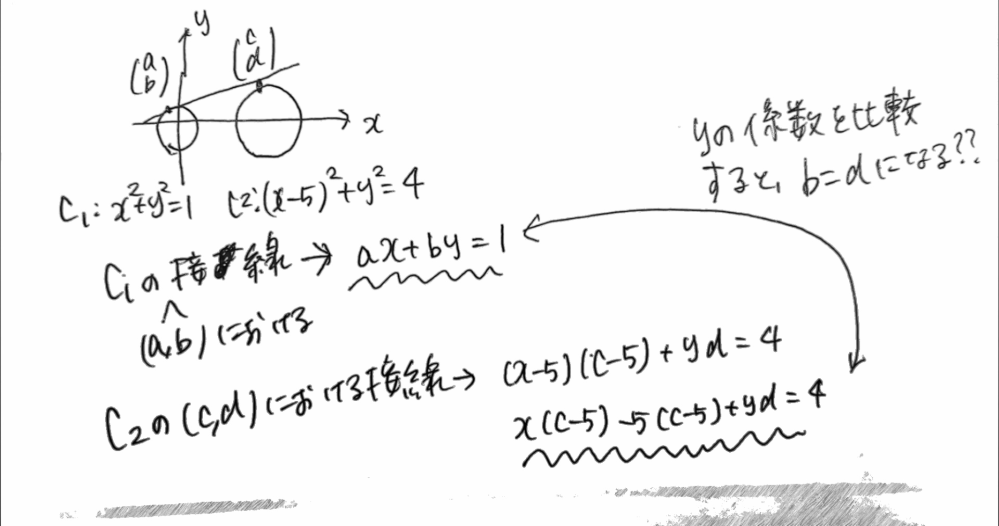 y
(a b)
(c d)
x
C₁: x²+y²=1 C2:(x-5)²+y²=4
yの係数を比較
すると, b=dになる??
C₁の接線→ ax+by=1
(a,b)における
C₂の(c,d)における接線→ (x-5)(c-5)+yd=4
x(c-5)-5(c-5)+yd=4